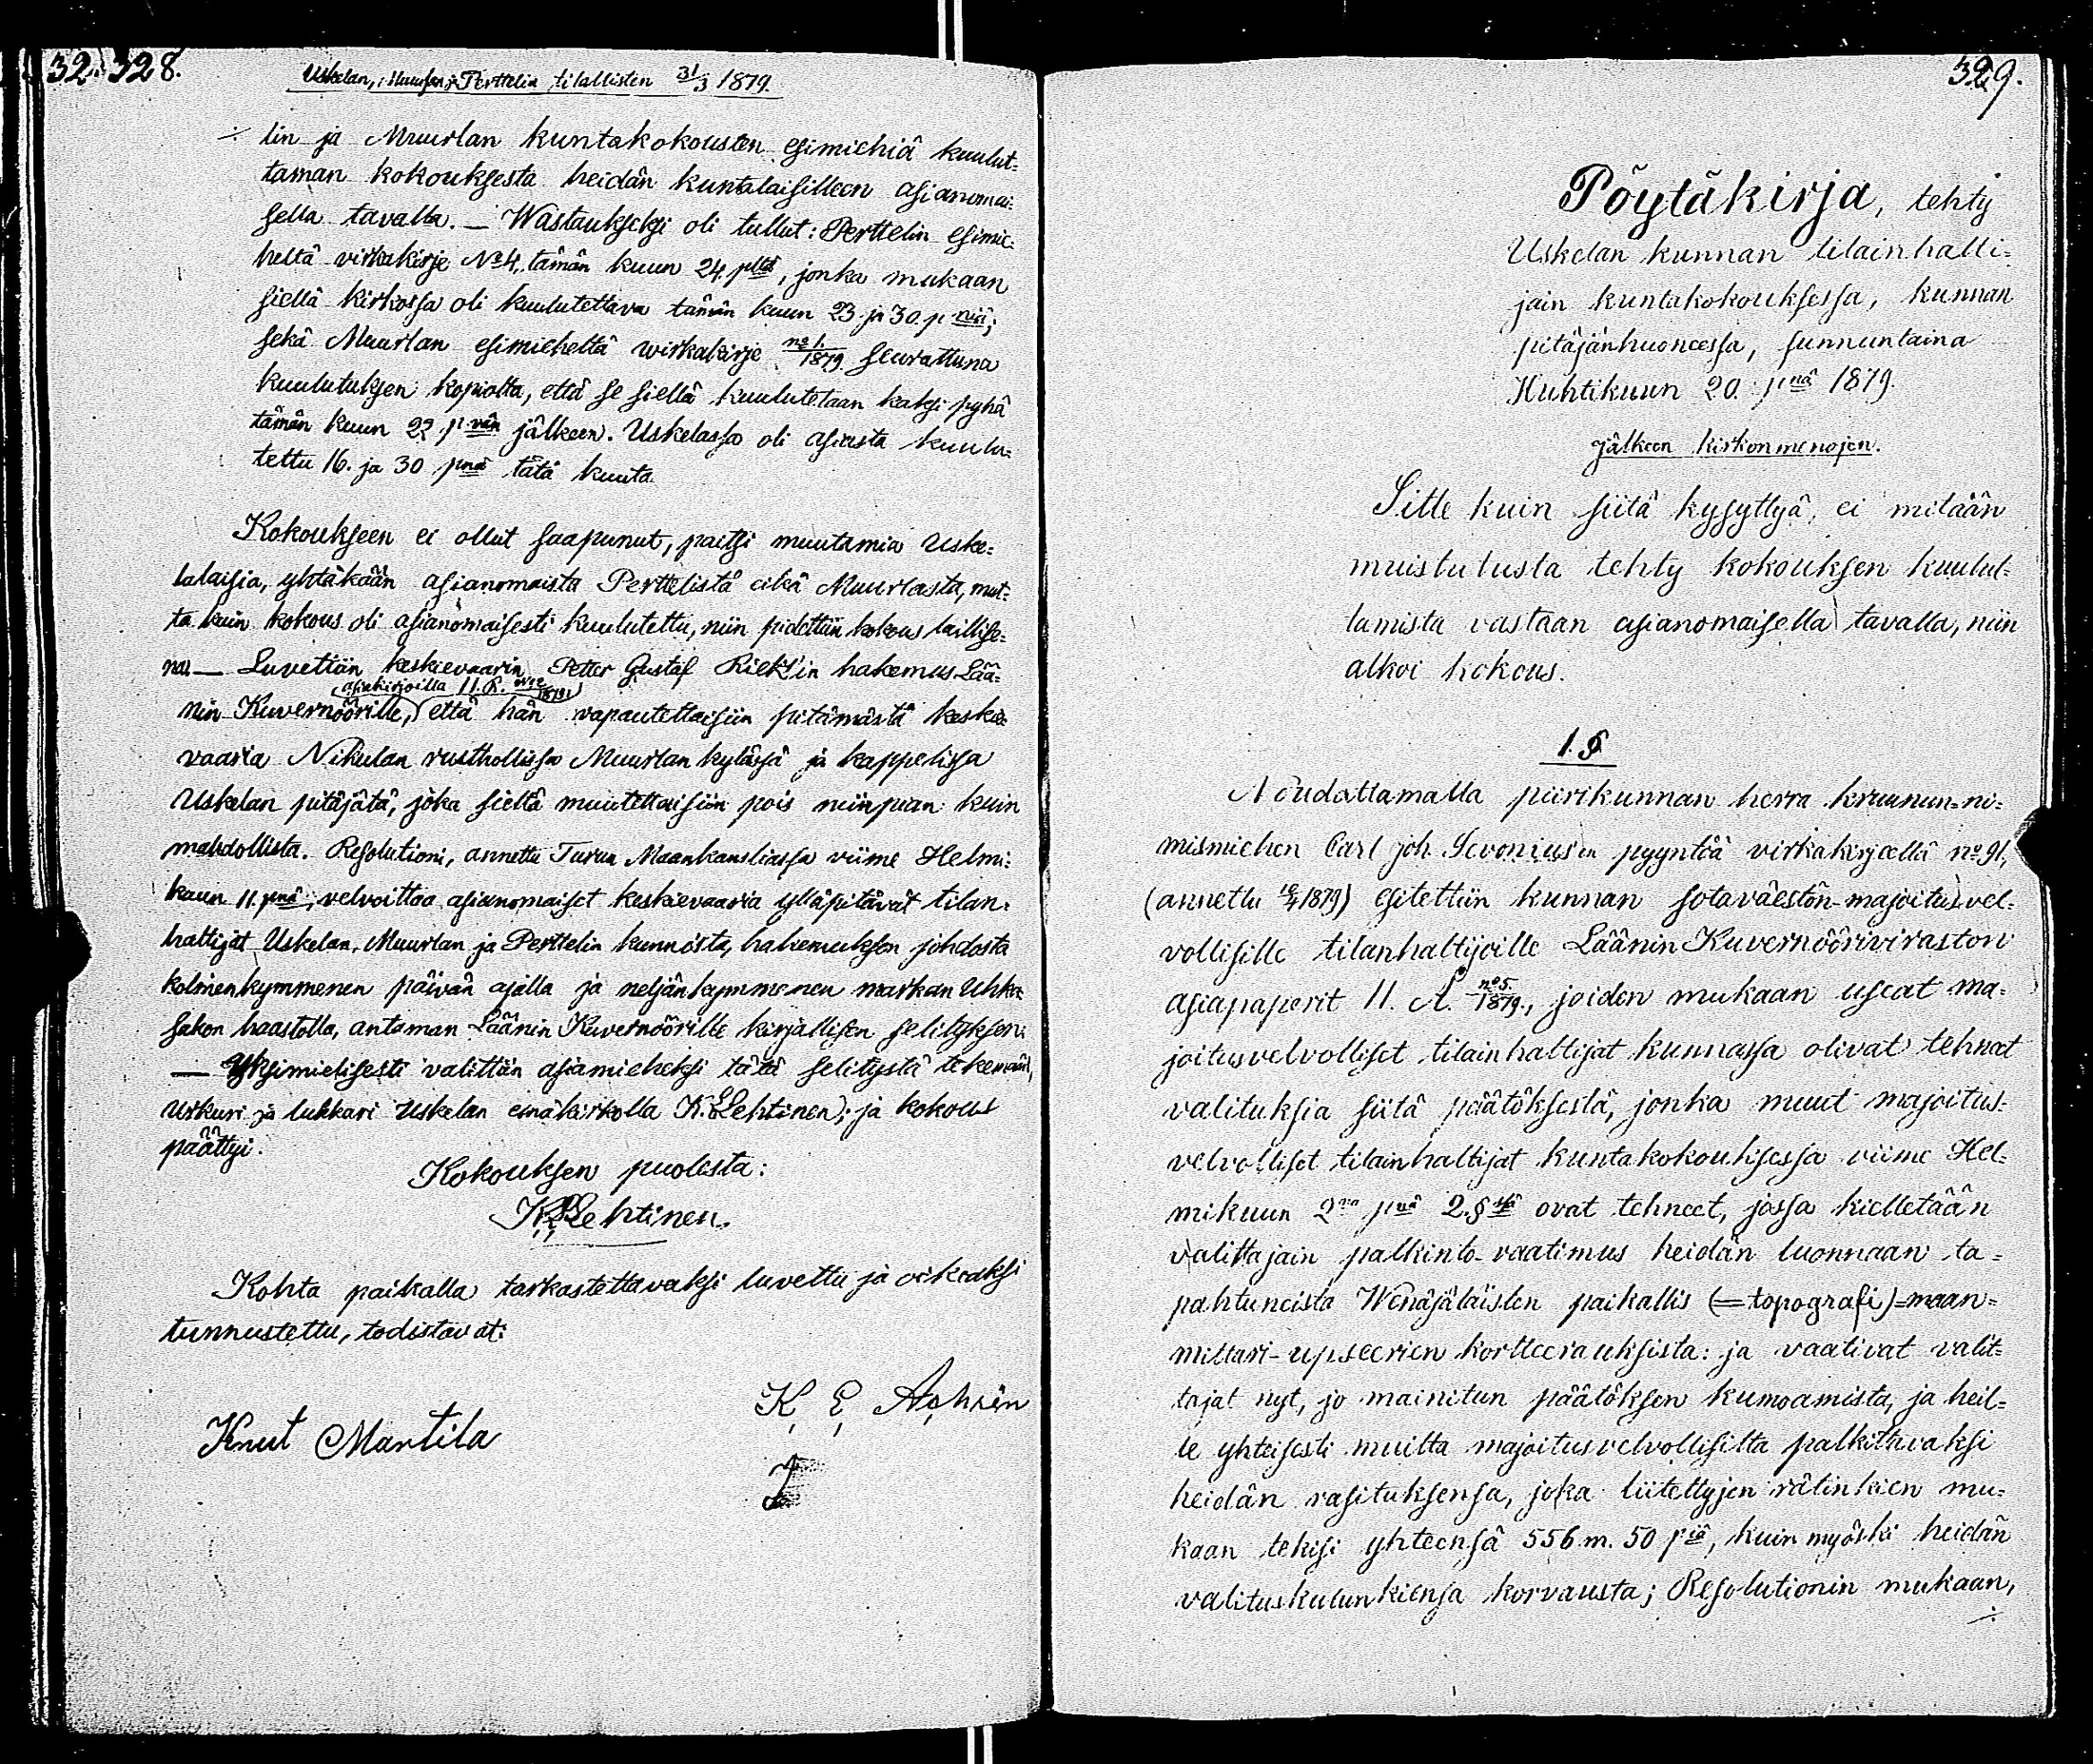 328.
Uskelan, Muurlan ja Perttelin tilallisten 31/3 1879.
÷ lin ja Muurlan kuntakokousten esimiehiä kuulut=
taman kokouksesta heidän kuntalaisilleen asianomai=
sella tavalla. — Wastaukseksi oli tullut: Perttelin esimie=
heltä virkakirje No 4, tämän kuun 24. pltä, jonka mukaan
siellä kirkossa oli kuulutettava tämän kuun 23. ja 30. p:nä;
sekä Muurlan esimieheltä wirkakirje no 1. 1879. seurattuna
kuulutuksen kopialta, että se siellä kuulutetaan kaksi pyhä
tämän kuun 22. p:vän jälkeen. Uskelassa oli asiasta kuulu=
tettu 16. ja 30 pnä tätä kuuta.
Kokoukseen ei ollut saapunut, paitsi muutamia Uske=
lalaisia, yhtäkään asianomaista Perttelistä eikä Muurlasta, mut=
ta kuin kokous oli asianomaisesti kuulutettu, niin pidettiin kokous laillise=
na. — Luvettiin keskievaarin Petter Gustaf Riek'in hakemus Lää=
asiakirjoilla 11. K. 1879.
nin Kuvernöörille, että hän vapautettaisiin pitämästä keskie=
vaaria Nikulan rusthollissa Muurlan kylässä ja kappelissa
Uskelan pitäjätä, joka sieltä muutettaisiin pois niinpian kuin
mahdollista. Resolutioni, annettu Turun Maankansliassa viime Helmi=
kuun 11. pnä, velvoittaa asianomaiset keskievaaria ylläpitävät tilan=
haltijat Uskelan, Muurlan ja Perttelin kunnista, hakemuksen johdosta
kolmenkymmenen päivän ajalla ja neljänkymmenen markan Uhka
sakon haastolla, antaman Läänin Kuvernöörille kirjallisen selityksen.
— Yksimielisesti valittiin asiamieheksi tätä selitystä tekemään,
Urkuri ja lukkari Uskelan emäkirkolla K. E. Lehtinen; ja kokous
päättyi.
Kokouksen puolesta:
K. E. Lehtinen.
Kohta paikalla tarkastettavaksi luvettu ja oikeaksi
tunnustettu, todistavat:
K. E.
Knut Martila
329.
Pöytäkirja, tehty
Uskelan kunnan tilainhalti=
jain kuntakokouksessa, kunnan
pitäjänhuoneessa, sunnuntaina
Huhtikuun 20. pnä 1879.
jälkeen kirkonmenojen.
Sitte kuin siitä kysyttyä, ei mitään
muistutusta tehty kokouksen kuulut=
tamista vastaan asianomaisella tavalla, niin
alkoi kokous.
1. §.
Noudattamalla piirikunnan herra kruunun=ni=
mismiehen Carl Joh. Sevonius'en pyyntöä virkakirjeellä no 91,
(annettu 1879) esitettiin kunnan sotaväestön-majoitusvel=
vollisille tilanhaltijoille Läänin Kuvernöörinviraston
asiapaperit 11. A. no 5. 1879., joiden mukaan useat ma=
joitusvelvolliset tilainhaltijat kunnassa olivat tehnet
valituksia siitä päätöksestä, jonka muut majoitus=
velvolliset tilainhaltijat kuntakokouksessa viime Hel=
mikuun 2na pnä 2. §ssä ovat tehneet, jossa kielletään
valittajain palkinto-vaatimus heidän luonnaan ta=
pahtuneista Wenäjäläisten paikallis (=topografi)=maan=
mittari-upseerien kortteerauksista: ja vaativat valit=
tajat nyt, jo mainitun päätöksen kumoamista, ja heil=
le yhteisesti muilta majoitusvelvollisilta palkittavaksi
heidän rasituksensa, joka liitettyjen rätinkien mu=
kaan tekisi yhteensä 556 m. 50 piä, kuin myöski heidän
valituskulunkiensa korvausta; Resolutionin mukaan,
÷